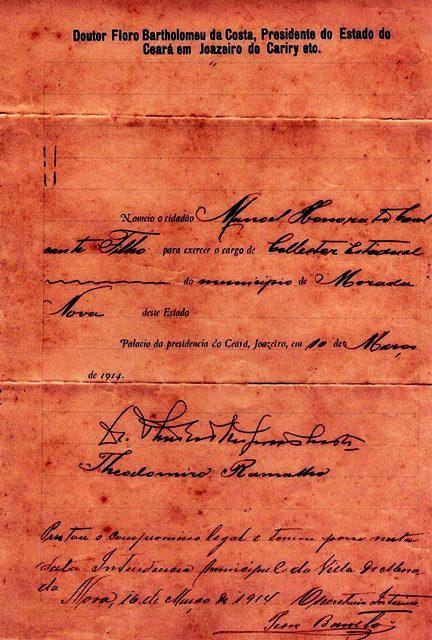 Doutor Floro Bartholomeu da Costa, Presidente do Estado do
Ceará em Joazeiro do Cariry etc.
Nomeio o cidadão Manoel Honorato Caval
cante Filho para exercer o cargo de Collector Estadual
do município de Morada
Nova deste Estado
Palacio da presidencia do Ceará, Joazeiro, em 10 de Março
de 1914.
Theodomiro Ramalho
Prestou o compromisso legal e tomou posse nesta
data. Intendencia Municipal da Villa de Mora
da Nova, 16 de Março de 1914